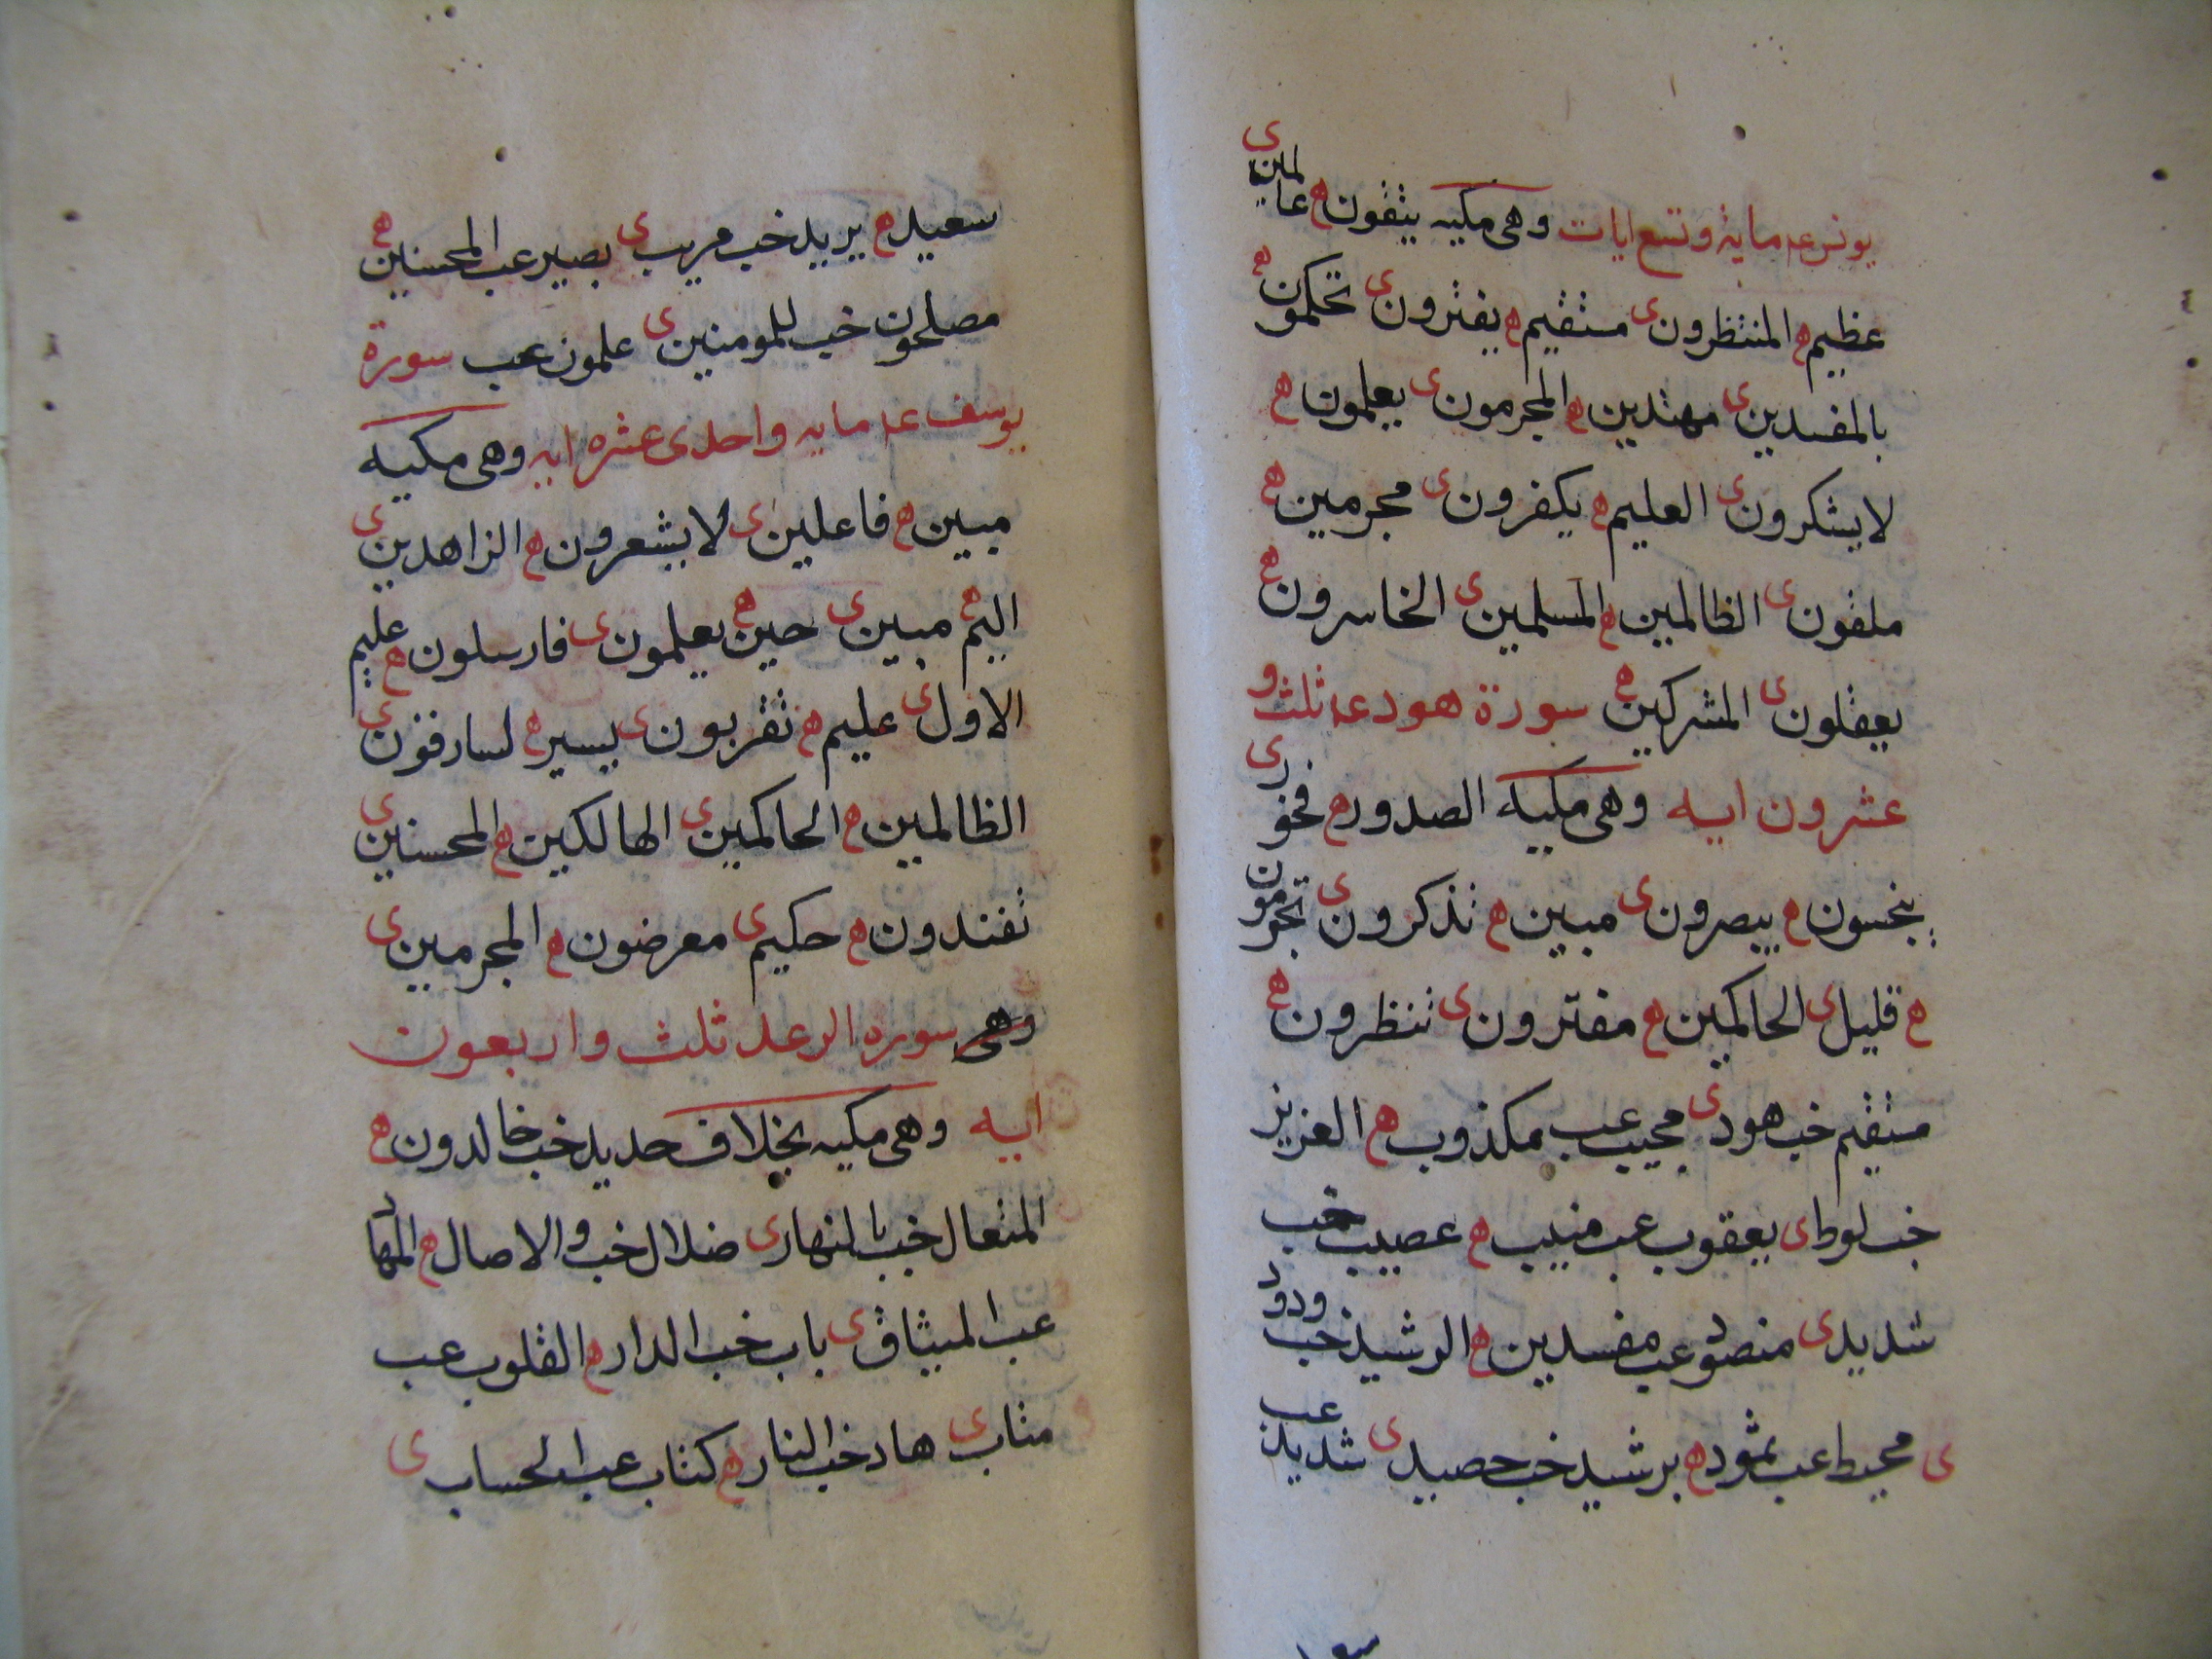 يونس عم ماية وتسع ايات وهى مكيه يتقون ه عالمين ى
عظيم ه المنتظرون ى مستقيم ه يفترون ى تحكمون ه
بالمفسدين ى مهتدين ه المجرمون ى يعلمون ه
لا يشكرون ى العليم ه يكفرون ى مجرمين ه
ملقون ى الظالمين ه المسلمين ى الخاسرون ه
يعقلون ى المشركين ه سورة هود عم ثلث و
عشرون ايه وهى مكيه الصدور ه فخور ى
يبخسون ه يبصرون ى مبين ه تذكرون ى تجرمون
ه قليل ى الحاكمين ه مفترون ى تنظرون ه
مستقيم خب هود ى مجيب عب مكذوب ه العزيز
خب لوط ى يعقوب عب منيب ه عصيب خب
شديد ى منضود عب مفسدين ه الرشيد خب ودود
ى محيط عب ثمود ه برشيد خب حصيد ى شديد عب
سعيد
سعيد ه يريد خب مريب ى بصير عب المحسنين ه
مصلحون خب للمومنين ى علمون عب سورة
يوسف عم مايه واحدى عشره ايه وهى مكيه
مبين ه فاعلين ى لا يشعرون ه الزاهدين ى
اليم ه مبين ى حين ه يعلمون ى فارسلون ه عليم
الاول ى عليم ه تقربون ى يسير ه لسارقون ى
الظالمين ه الحاكمين ى الهالكين ه المحسنين ى
تفندون ه حكيم ى معرضون ه المجرمين ى
وهى سوره الرعد ثلث واربعون
ايه وهى مكيه بخلاف حديد خب خالدون ه
المتعال خب بالنهار ى ضلال خب والاصال ه المهاد
عب الميثاق ى باب خب الدار ه القلوب عب
متاب ى هاد خب النار ه كتاب عب الحساب ى